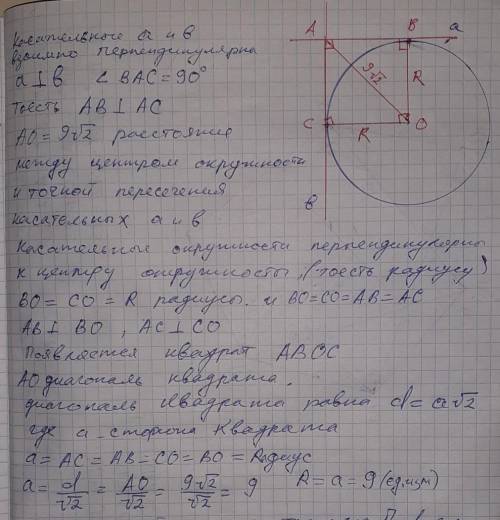 касательные а и в
взаимно перпендикулярна
a ⊥ в ∠ BAC = 90°
тоесть AB ⊥ AC
AO = 9√2 расстояние
между центром окружности
и точкой пересечения
касательных а и в
A B a
9√2 R
C R O
в
Касательные окружности перпендикулярны
к центру окружности, (тоесть радиусу)
BO = CO = R радиусы. и BO=CO=AB=AC
AB ⊥ BO , AC ⊥ CO
Появляется квадрат ABOC
AO диагональ квадрата.
диагональ квадрата равна d = a√2
где a - сторона квадрата
a = AC = AB = CO = BO = Радиус
a = d/√2 = AO/√2 = 9√2/√2 = 9 R = a = 9 (ед.изм)